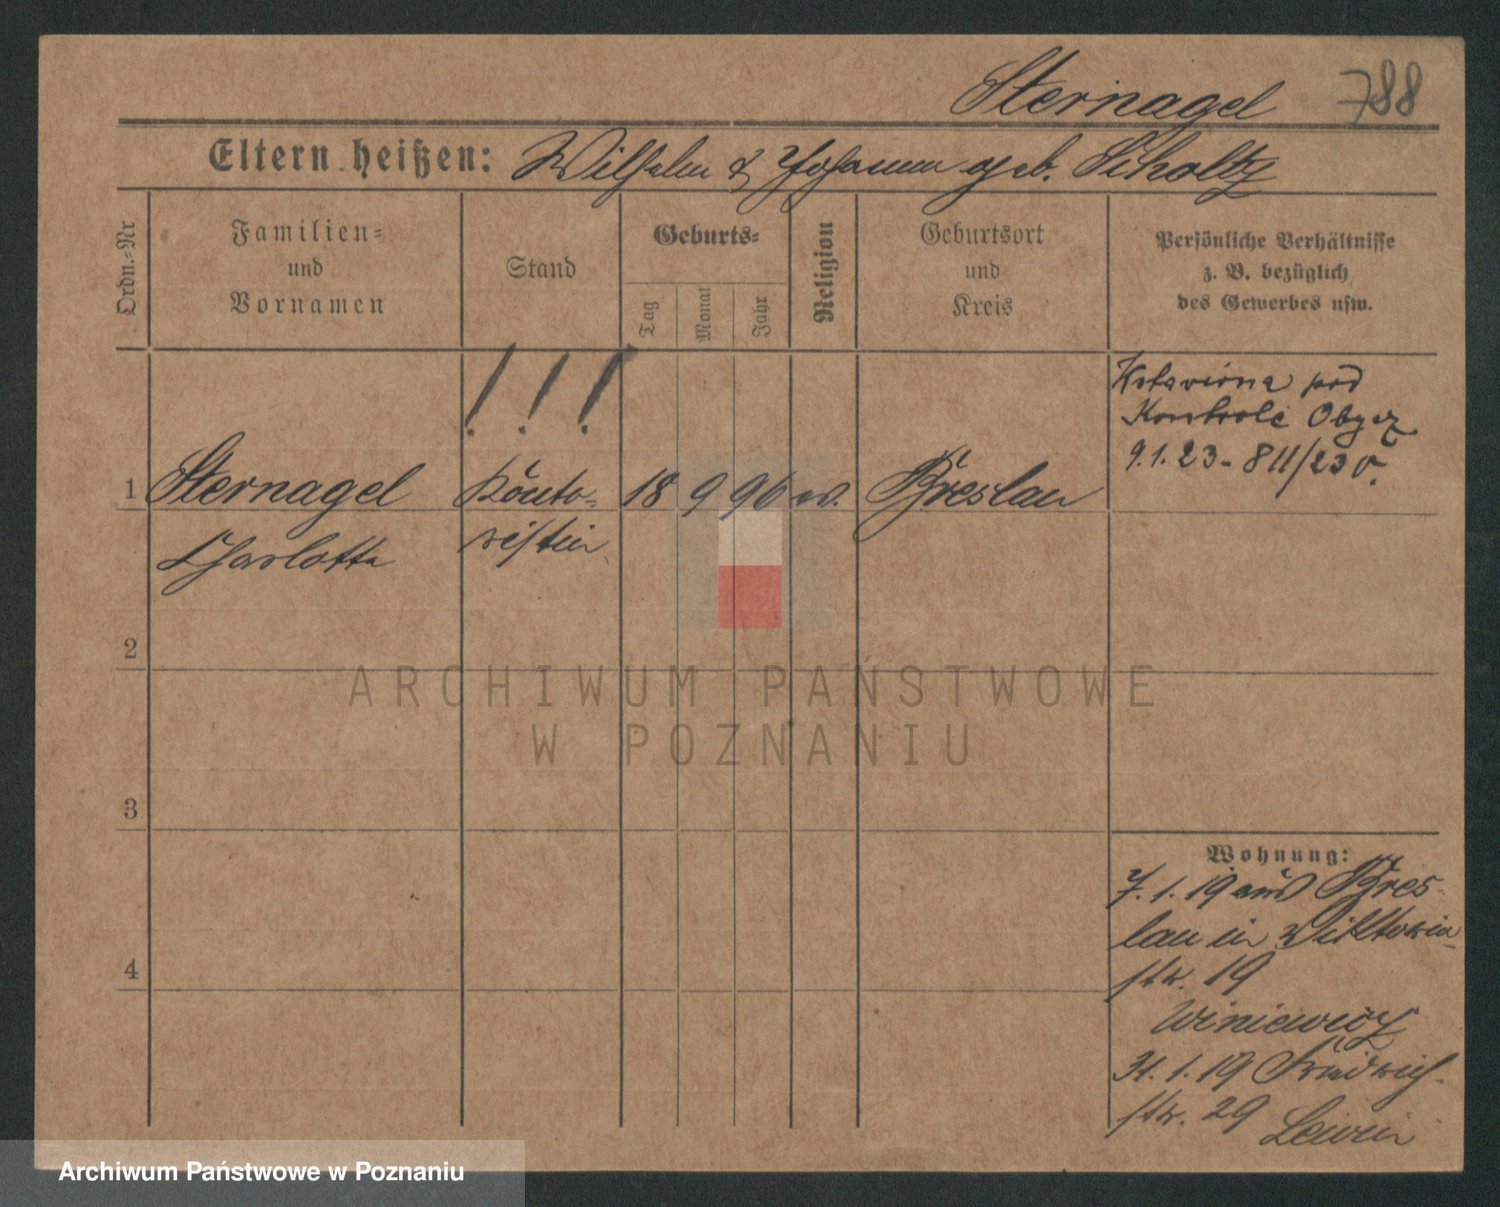 Sternagel 788
Eltern heißen: Wilhelm & Johanna geb. Scholtz
Ordn.-Nr
Familien-
und
Vornamen
Stand
Geburts-
Tag
Monat
Jahr
Religion
Geburtsort
und
Kreis
Persönliche Verhältnisse
z. B. bezüglich
des Gewerbes usw.
! ! !
pod
Kontrolę Obycz
9.1.23 - 811/23 O.
1 Sternagel Konto- 18 9 96 Breslau
Charlotte ristin
2
3
4
Wohnung:
7.1.19 aus Bres-
lau in Viktoria-
str. 19
31.1.19 Friedrich-
str. 29 Lewin
ARCHIWUM PAŃSTWOWE
W POZNANIU
Archiwum Państwowe w Poznaniu